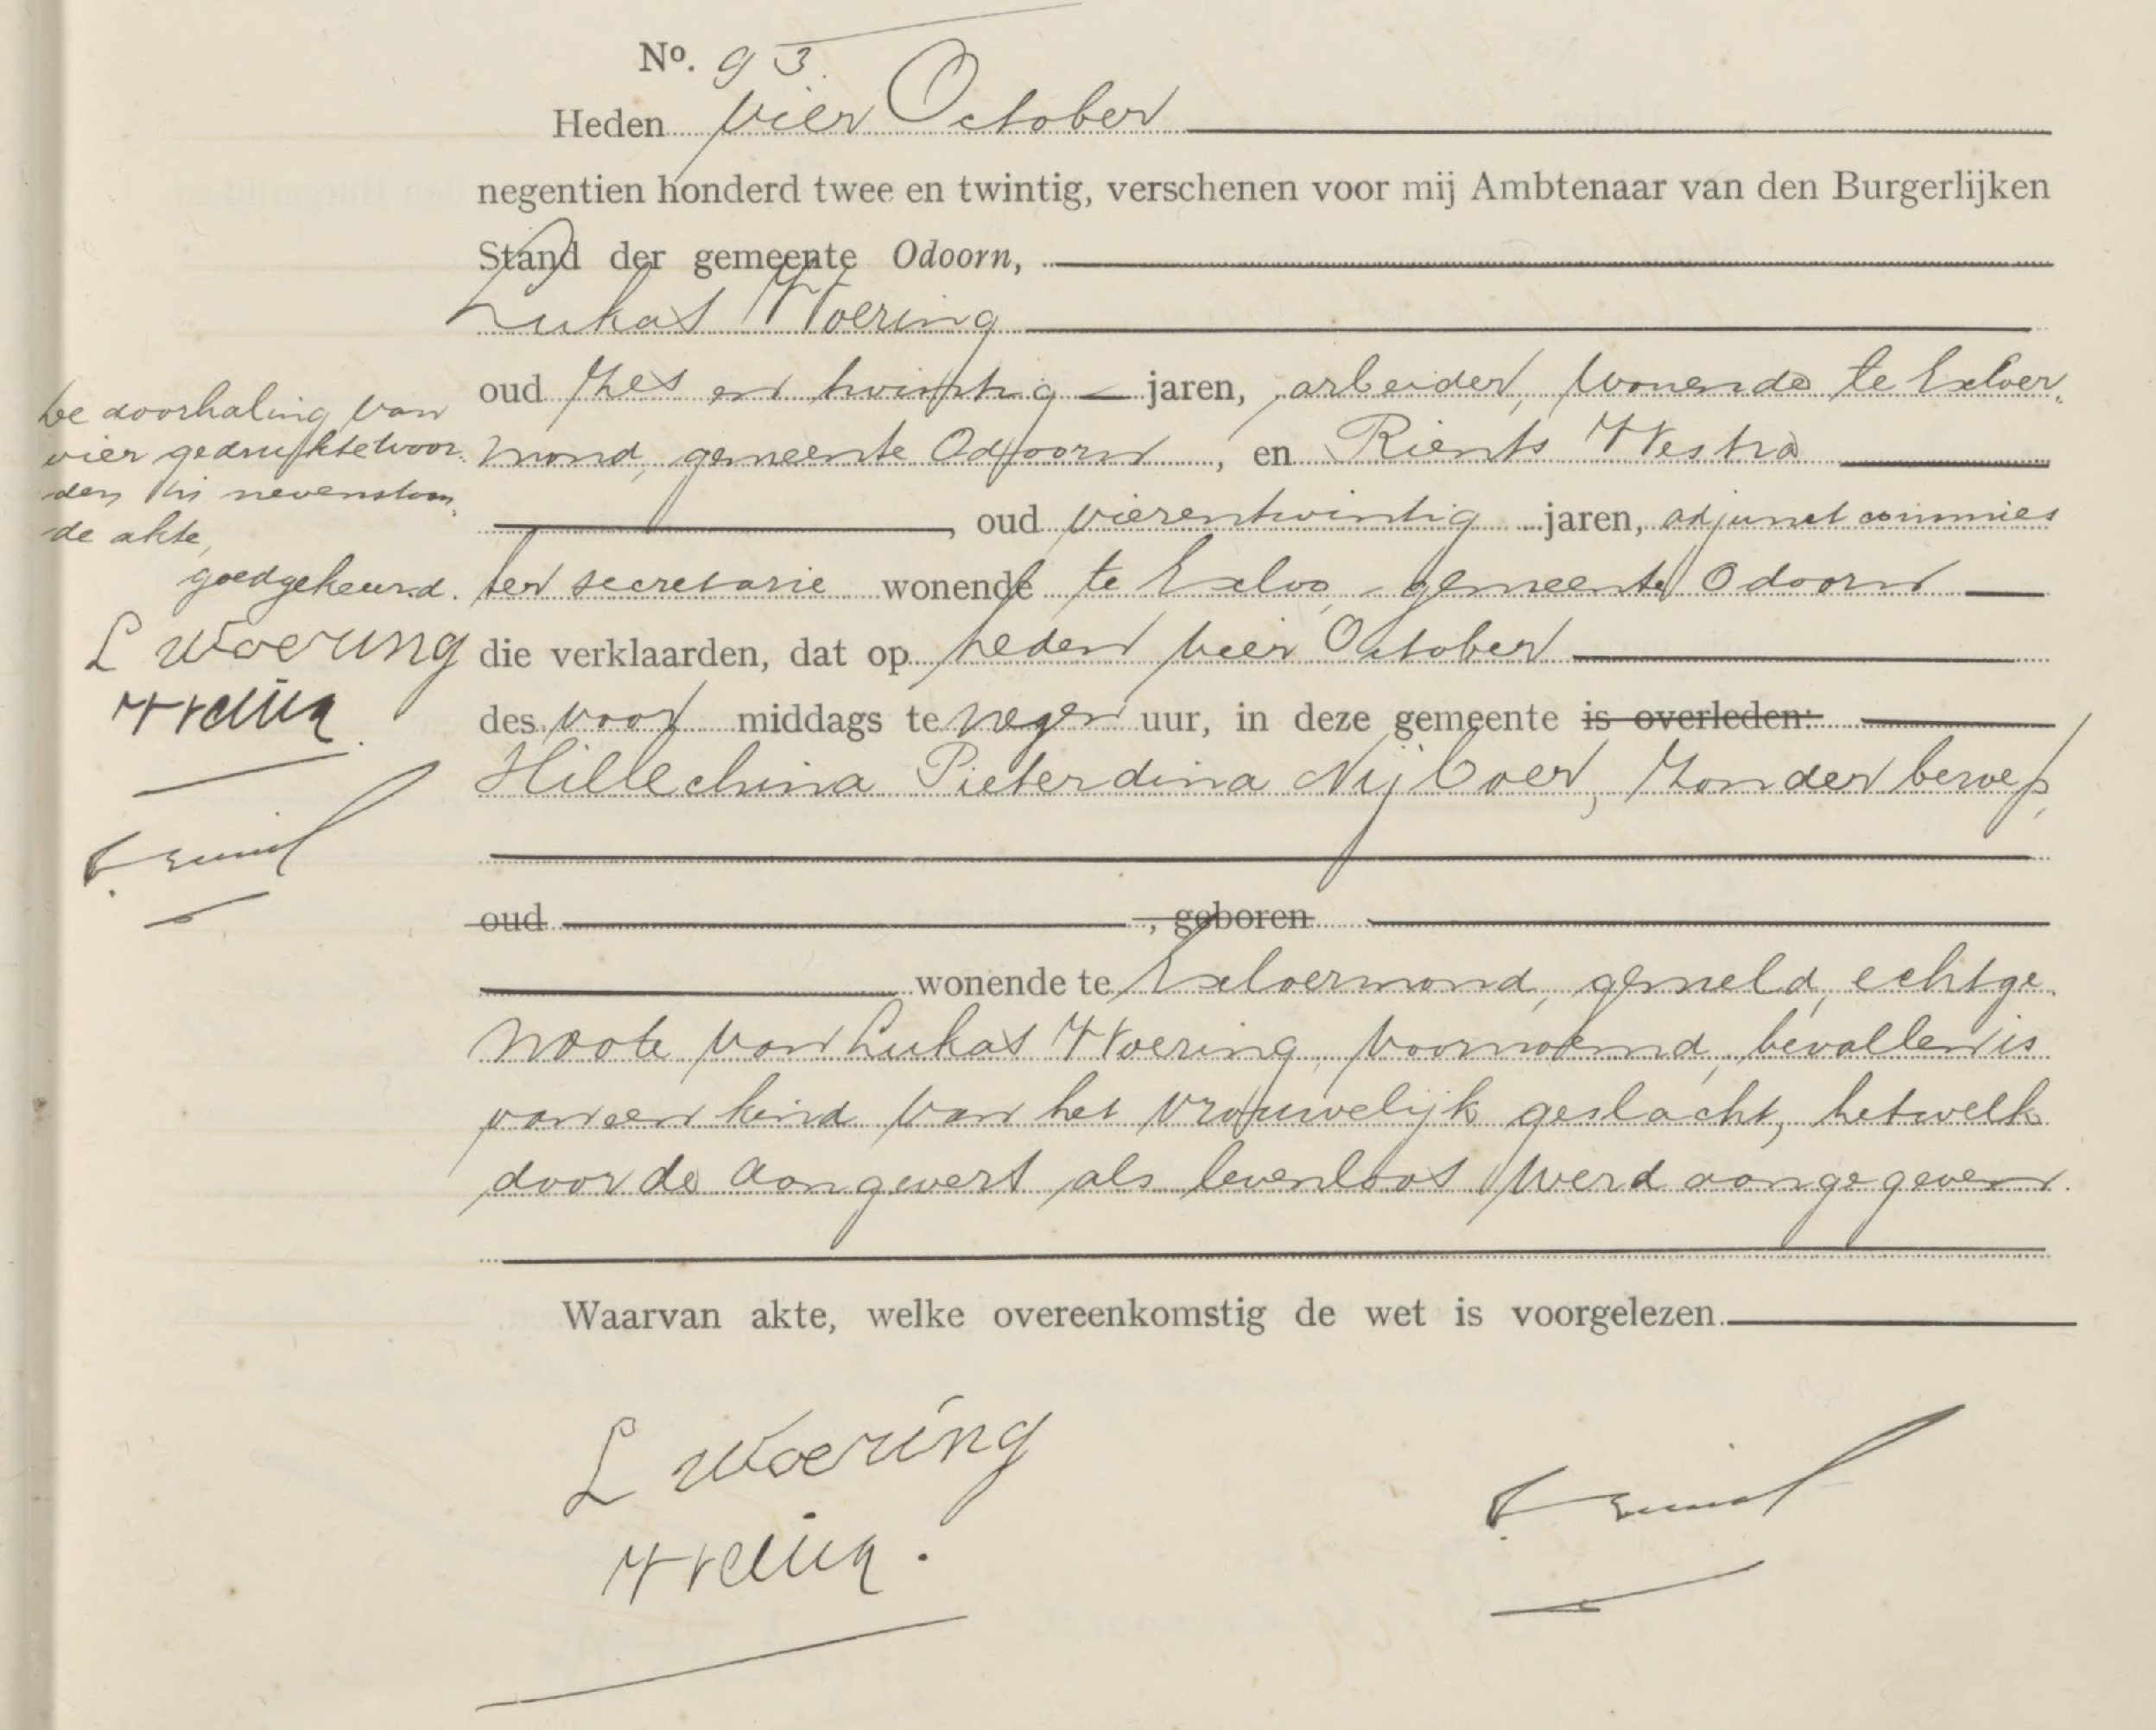 No. 93.
Heden vier October
negentien honderd twee en twintig, verschenen voor mij Ambtenaar van den Burgerlijken
Stand der gemeente Odoorn,
Lukas Woering
oud zes en twintig jaren, arbeider, wonende te Exloër-
mond, gemeente Odoorn, en Rients Westra
, oud vierentwintig jaren, adjunct commies
ter secretarie wonende te Exloo, gemeente Odoorn
die verklaarden, dat op heden vier October
des voor middags te negen uur, in deze gemeente is overleden:
Hillechina Pieterdina Nijboer, zonder beroep,
oud , geboren
wonende te Exloërmond, gemeld, echtge-
noote van Lukas Woering, voornoemd, bevallen is
van een kind van het vrouwelijk geslacht, hetwelk
door de aangevers als levenloos werd aangegeven.
Waarvan akte, welke overeenkomstig de wet is voorgelezen.
L Woering
RWestra.
De doorhaling van
vier gedrukte woor-
den in nevenstaan-
de akte,
goedgekeurd.
L Woering
RWestra